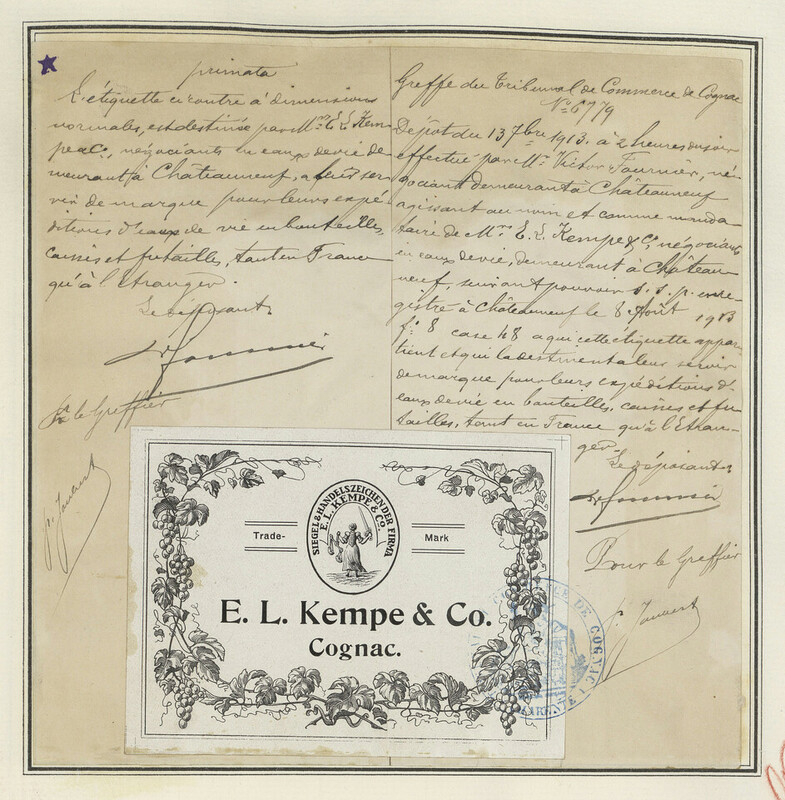 primata
L'étiquette ci contre à dimensions
normales, est destinée par Mrs E. L. Kem
pe & Co, négociants en eaux de vie de
meurant à Châteauneuf, à leur ser
vir de marque pour leurs expé
ditions d'eaux de vie en bouteilles,
caisses et futailles, tant en France
qu'à l'Etranger.
Le déposant.
Vr Fournier
Pr le Greffier
P. Jaubert
Greffe du Tribunal de Commerce de Cognac
No 6779
Dépôt du 13 7bre 1913. à 2 heures du soir
effectué par Mr Victor Fournier, né-
gociant demeurant à Châteauneuf
agissant au nom et comme manda
taire de Mrs E. L. Kempe & Co, négociants
en eaux de vie, demeurant à Château
neuf, suivant pouvoir s. s. p. enre-
gistré à Châteauneuf le 8 Août 1913
fo 8 case 48 à qui cette étiquette appar
tient et qui la destinent à leur servir
de marque pour leurs expéditions d'
eaux de vie en bouteilles, caisses et fu
tailles, tant en France qu'à l'Etran-
ger.
Le déposant.
Vr Fournier
Pour le Greffier
P. Jaubert
SIEGEL & HANDELSZEICHEN DER FIRMA
E. L. KEMPE & CO.
Trade- Mark
E. L. Kempe & Co.
Cognac.
DE COGNAC